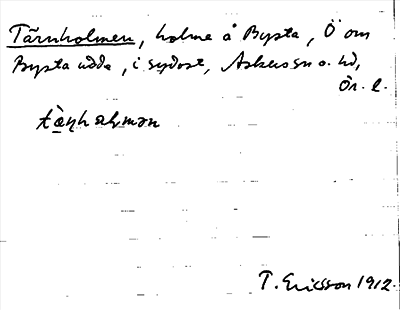 Tärnholmen, holme å Bysta, Ö om
Bysta udde, i sydost, Askers sn o. hd,
Ör. l.
tæ̀ṇhɑlmən
T. Ericsson 1912.